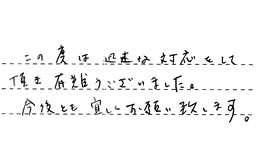 この度は迅速な対応をして
頂き有難うございました。
今後とも宜しくお願い致します。